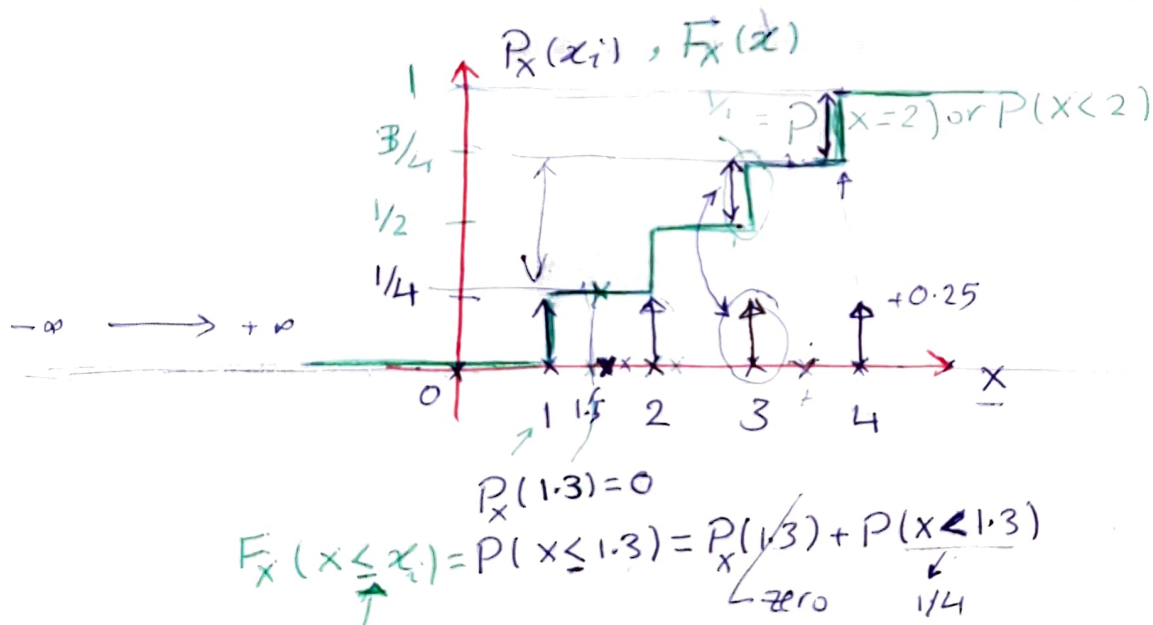 P_X(x_i) , F_X(x)
1
= P(x=2) or P(x<2)
3/4
1/2
1/4
+0.25
-∞ → +∞
0
1 1.5 2 3 4
X
P_X(1.3)=0
F_X(x≤x_i)=P(x≤1.3)=P_X(1.3)+P(x<1.3)
zero
1/4